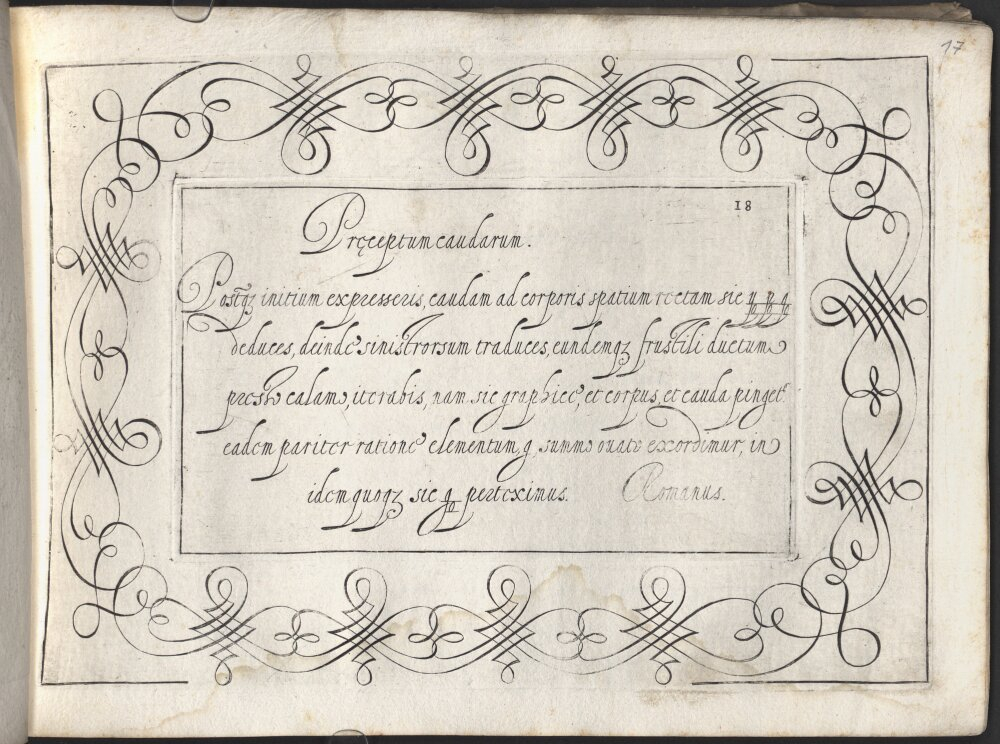 17
18
Pręceptum caudarum.
Postq̃ꝫ initium expresseris, caudam ad corporis spatium rectam sic
deduces, deinde sinistrorsum traduces, eundemqꝫ frustili ductum
presso calamo, iterabis, nam sic graphice, et corpus, et cauda pinget
eadem pariter ratione elementum, q, summo ouato exordimur, in
idem quoqꝫ sic q perteximus. Romanus.